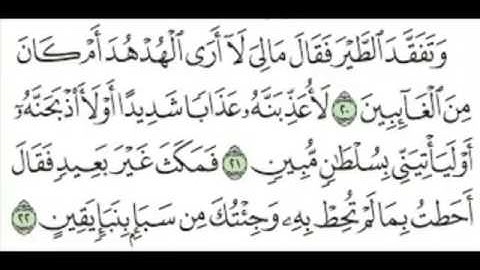 وَتَفَقَّدَ ٱلطَّيْرَ فَقَالَ مَالِىَ لَآ أَرَى ٱلْهُدْهُدَ أَمْ كَانَ
مِنَ ٱلْغَآئِبِينَ ٢٠ لَأُعَذِّبَنَّهُۥ عَذَابًا شَدِيدًا أَوْ لَأَا۟ذْبَحَنَّهُۥٓ
أَوْ لَيَأْتِيَنِّى بِسُلْطَٰنٍ مُّبِينٍ ٢١ فَمَكَثَ غَيْرَ بَعِيدٍ فَقَالَ
أَحَطتُ بِمَا لَمْ تُحِطْ بِهِۦ وَجِئْتُكَ مِن سَبَإٍۭ بِنَبَإٍ يَقِينٍ ٢٢